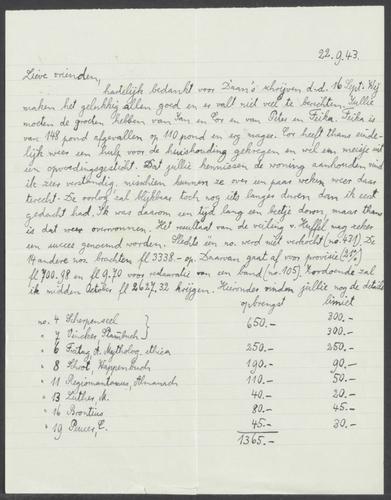 22.9.43.
Lieve vrienden,
hartelijk bedankt voor Daan's schrijven d.d. 16 Sept. Wij
maken het gelukkig allen goed en er valt niet veel te berichten. Jullie
moeten de groeten hebben van Jan en Cor en van Peter en Fiska. Fiska is
van 148 pond afgevallen op 110 pond en erg mager. Cor heeft thans einde-
lijk weer een hulp voor de huishouding gekregen en wel een meisje uit
een opvoedingsgesticht. Dat jullie kennissen de woning aanhouden vind
ik zeer verstandig, misschien kunnen ze over een paar weken weer daar
terecht. De oorlog zal blijkbaar toch nog iets langer duren dan ik eerst
gedacht had. Ik was daarom een tijd lang een beetje down, maar thans
is dat weer overwonnen. Het resultaat van de veiling v. Huffel mag zeker
een succes genoemd worden. Slechts één no. werd niet verkocht (no. 431). De
14 andere nos. brachten fl 3338.- op. Daarvan gaat af voor provisie (21%)
fl 700.98 en fl 9.70 voor reparatie van een band (no. 105). Zoodoende zal
ik midden October fl 2627.32 krijgen. Hieronder vinden jullie nog de details
opbrengst limiet
no. 4 Scherpenseel 300.-
" 7 Vinckes, Stambuch } 650.- 300.-
" 6 Freitag, A. Mytholog. ethica 250.- 250.-
" 8 Schrot, Wappenbuch 190.- 90.-
" 11 Regiomontanus, Almanach 110.- 50.-
" 13 Luther, M. 40.- 20.-
" 16 Brontius 80.- 45.-
" 19 Peucer, C. 45.- 30.-
1365.-